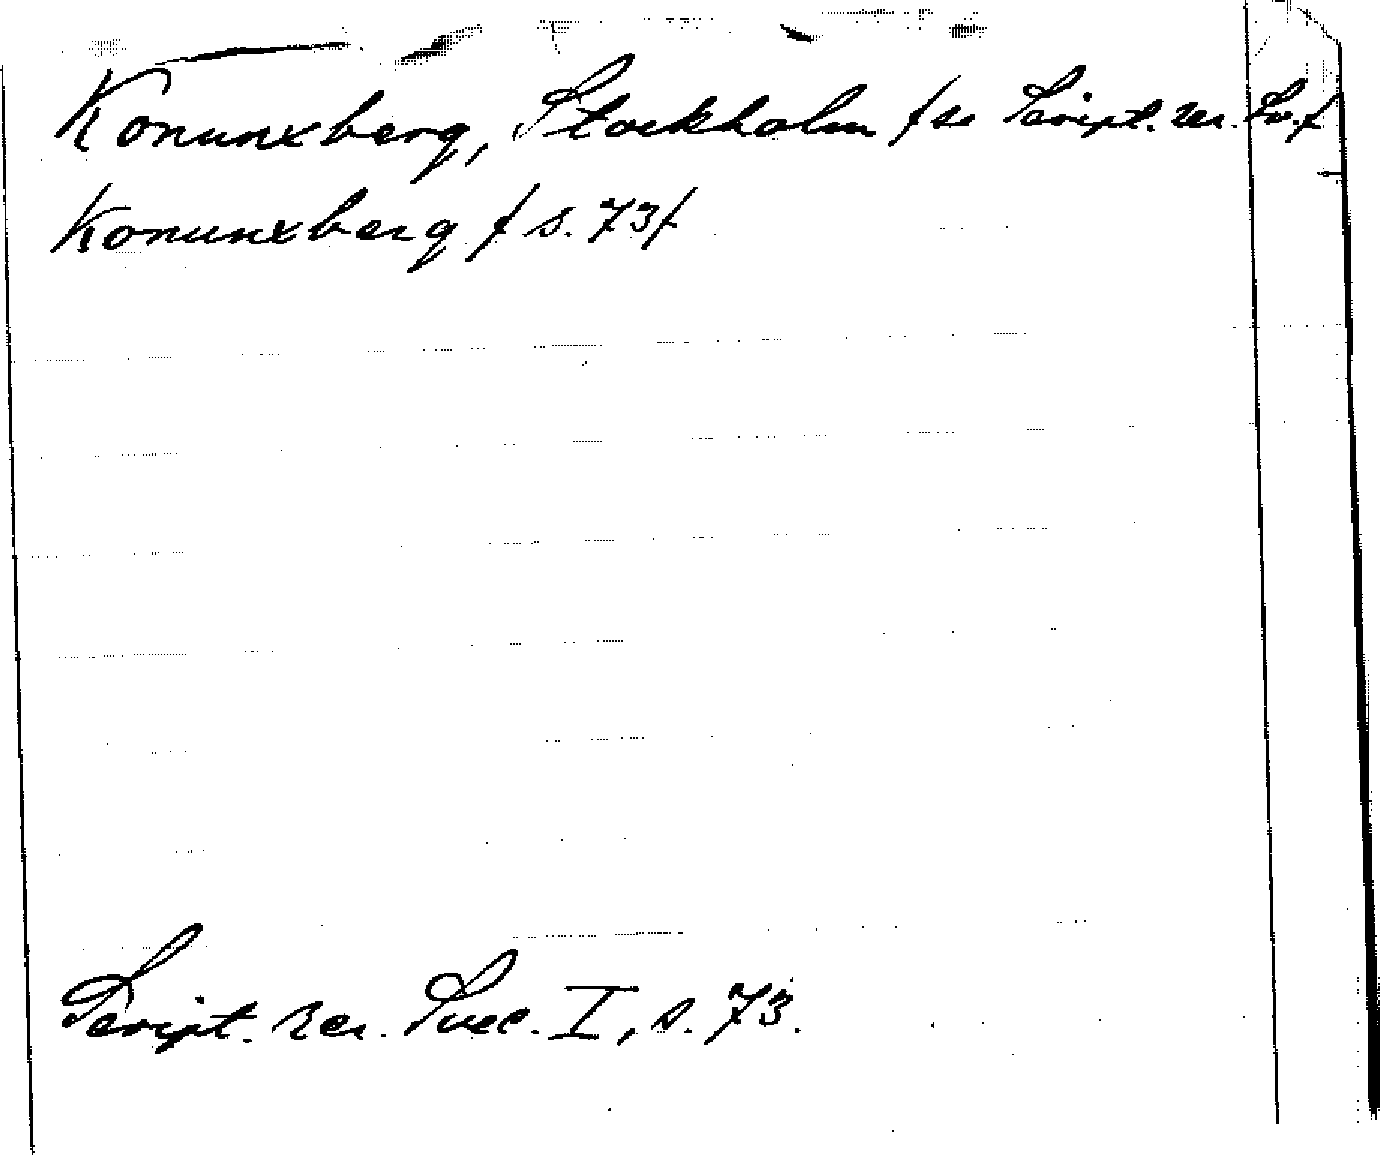 Konunxberg, Stockholm /se Script. rer. Sv./
Konunxberg / s. 73/
Script. rer. Suec. I, s. 73.